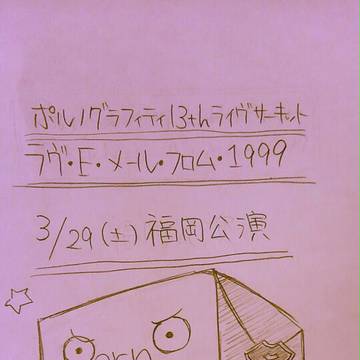 ポルノグラフィティ13thライヴサーキット
ラヴ・E・メール・フロム・1999
3/29(土)福岡公演
orn